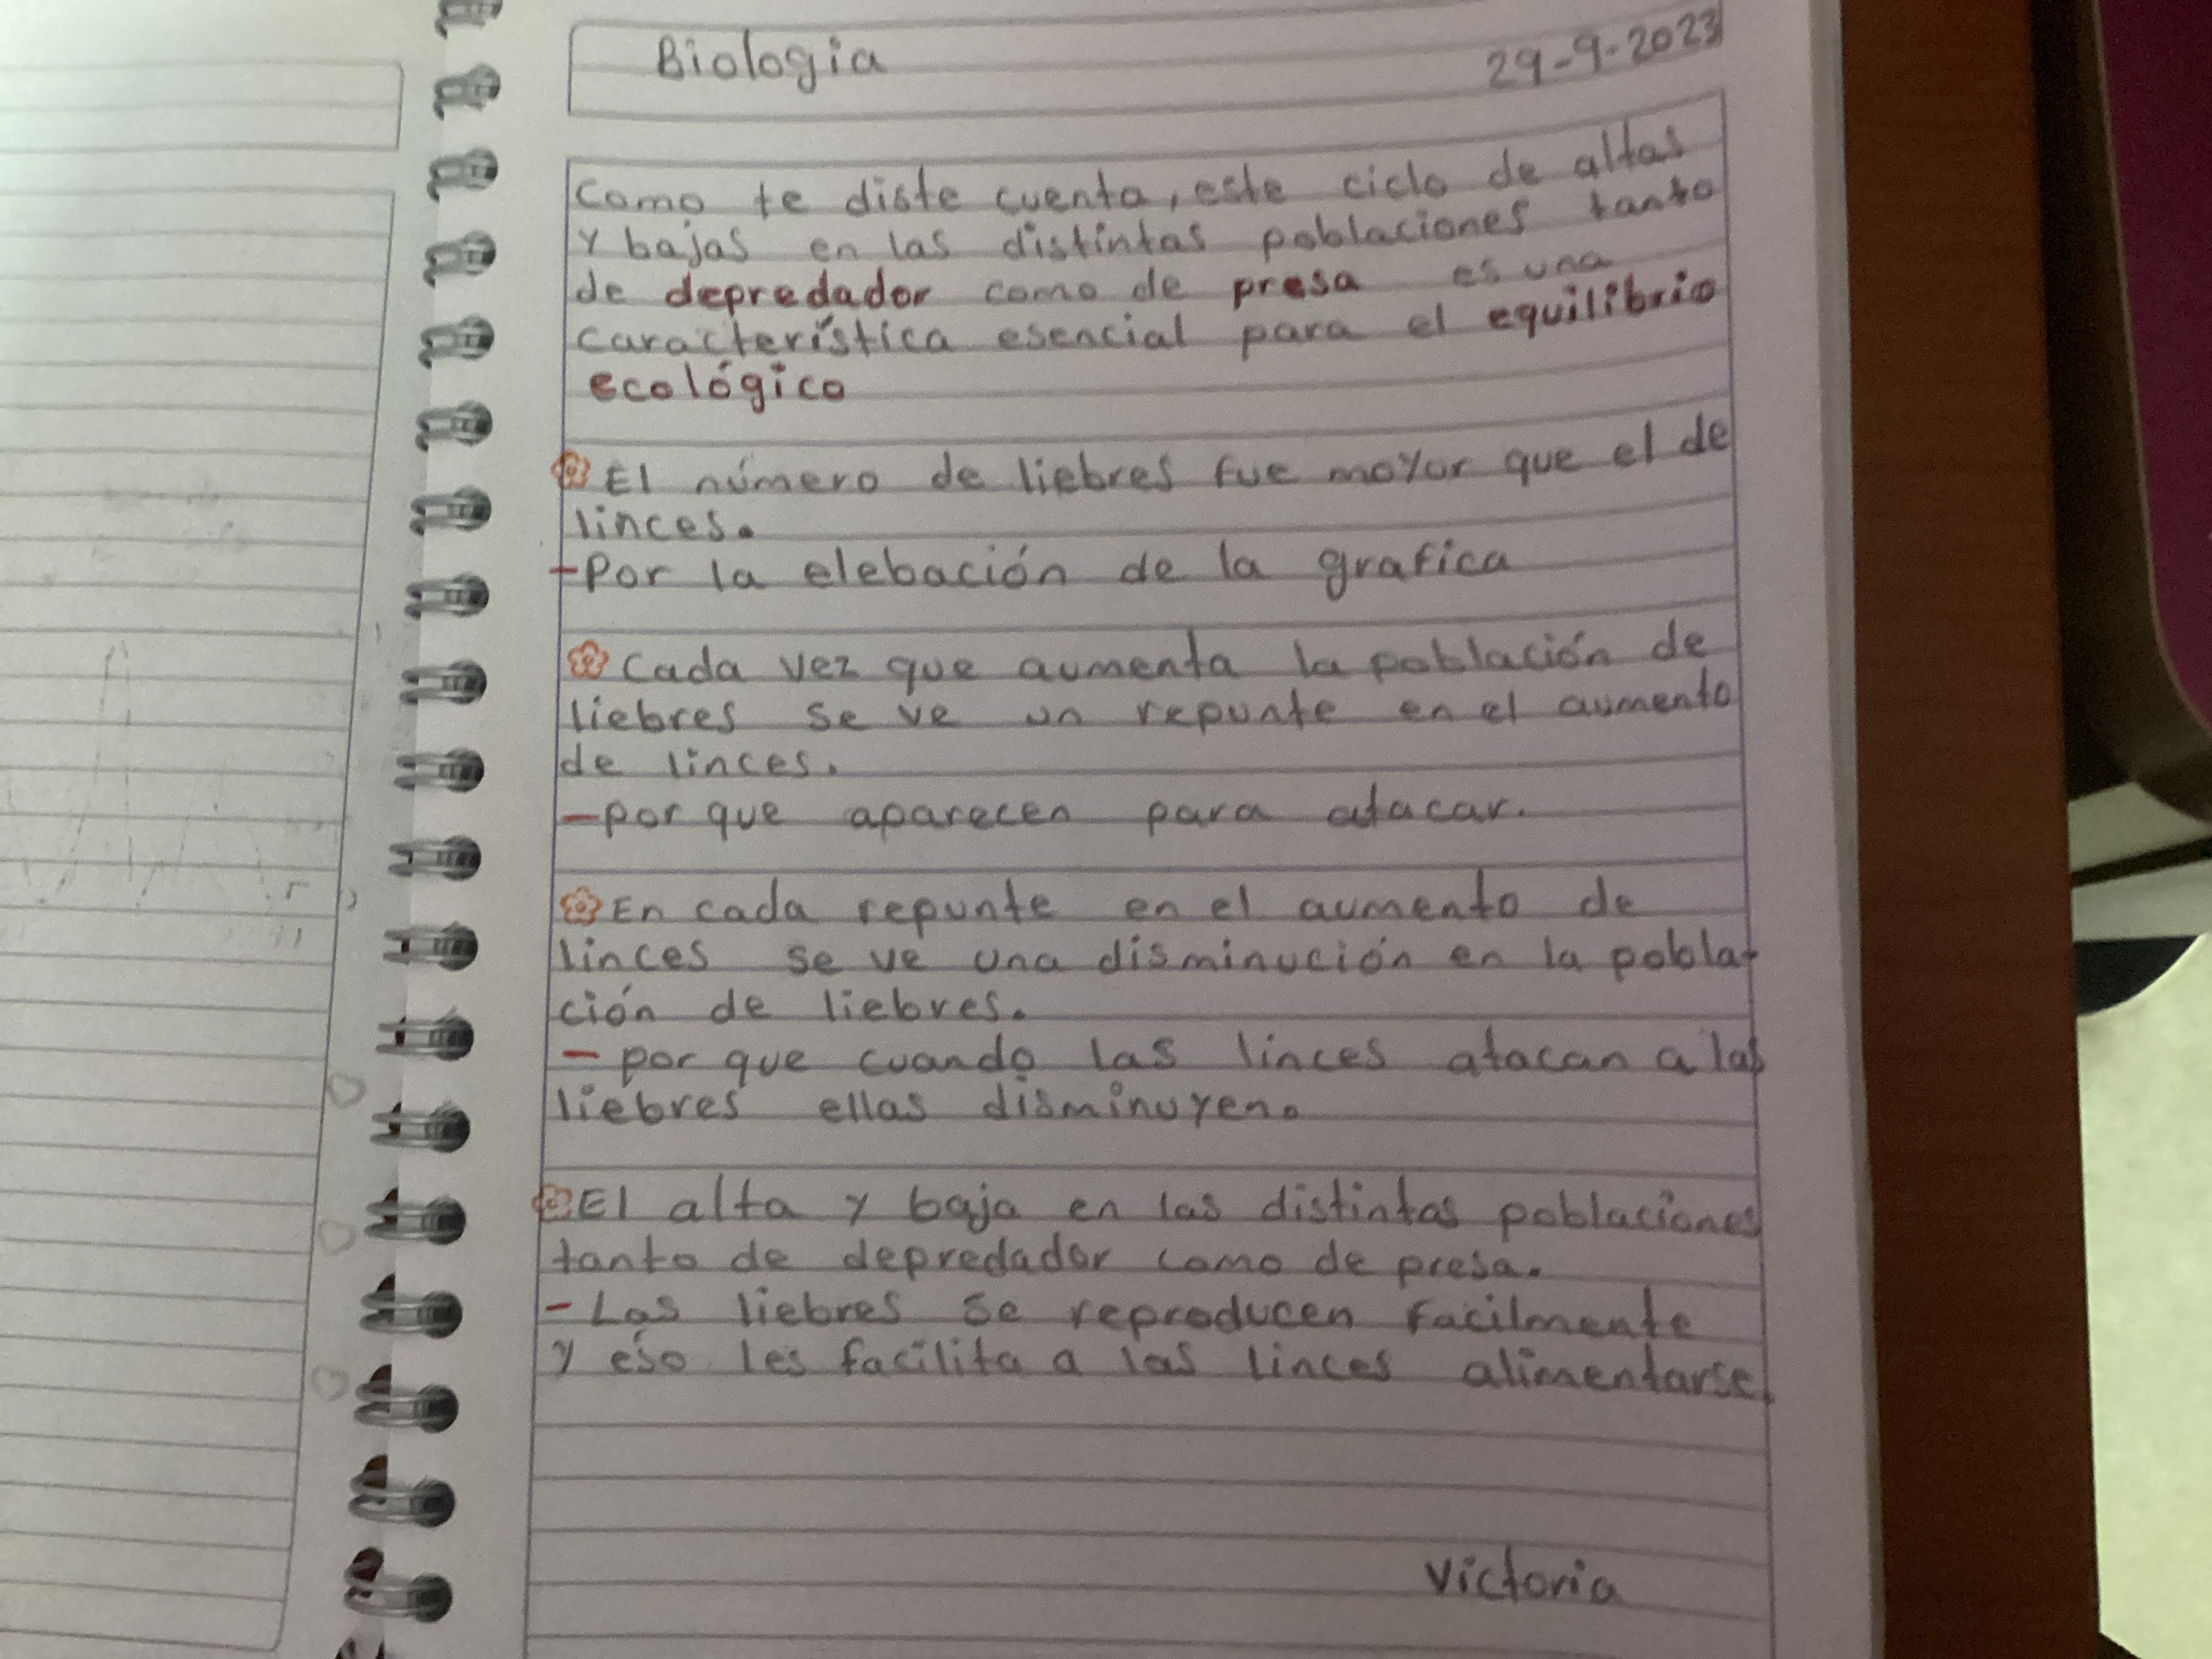 Biologia
29-9-2023
Como te diste cuenta, este ciclo de altas
y bajas en las distintas poblaciones tanto
de depredador como de presa es una
característica esencial para el equilibrio
ecológico
El número de liebres fue mayor que el de
linces.
-Por la elebación de la grafica
Cada vez que aumenta la población de
liebres se ve un repunte en el aumento
de linces.
-por que aparecen para atacar.
En cada repunte en el aumento de
linces se ve una disminución en la pobla-
ción de liebres.
- por que cuando las linces atacan a las
liebres ellas disminuyen.
El alta y baja en las distintas poblaciones
tanto de depredador como de presa.
- Las liebres se reproducen facilmente
y eso les facilita a las linces alimentarse.
Victoria